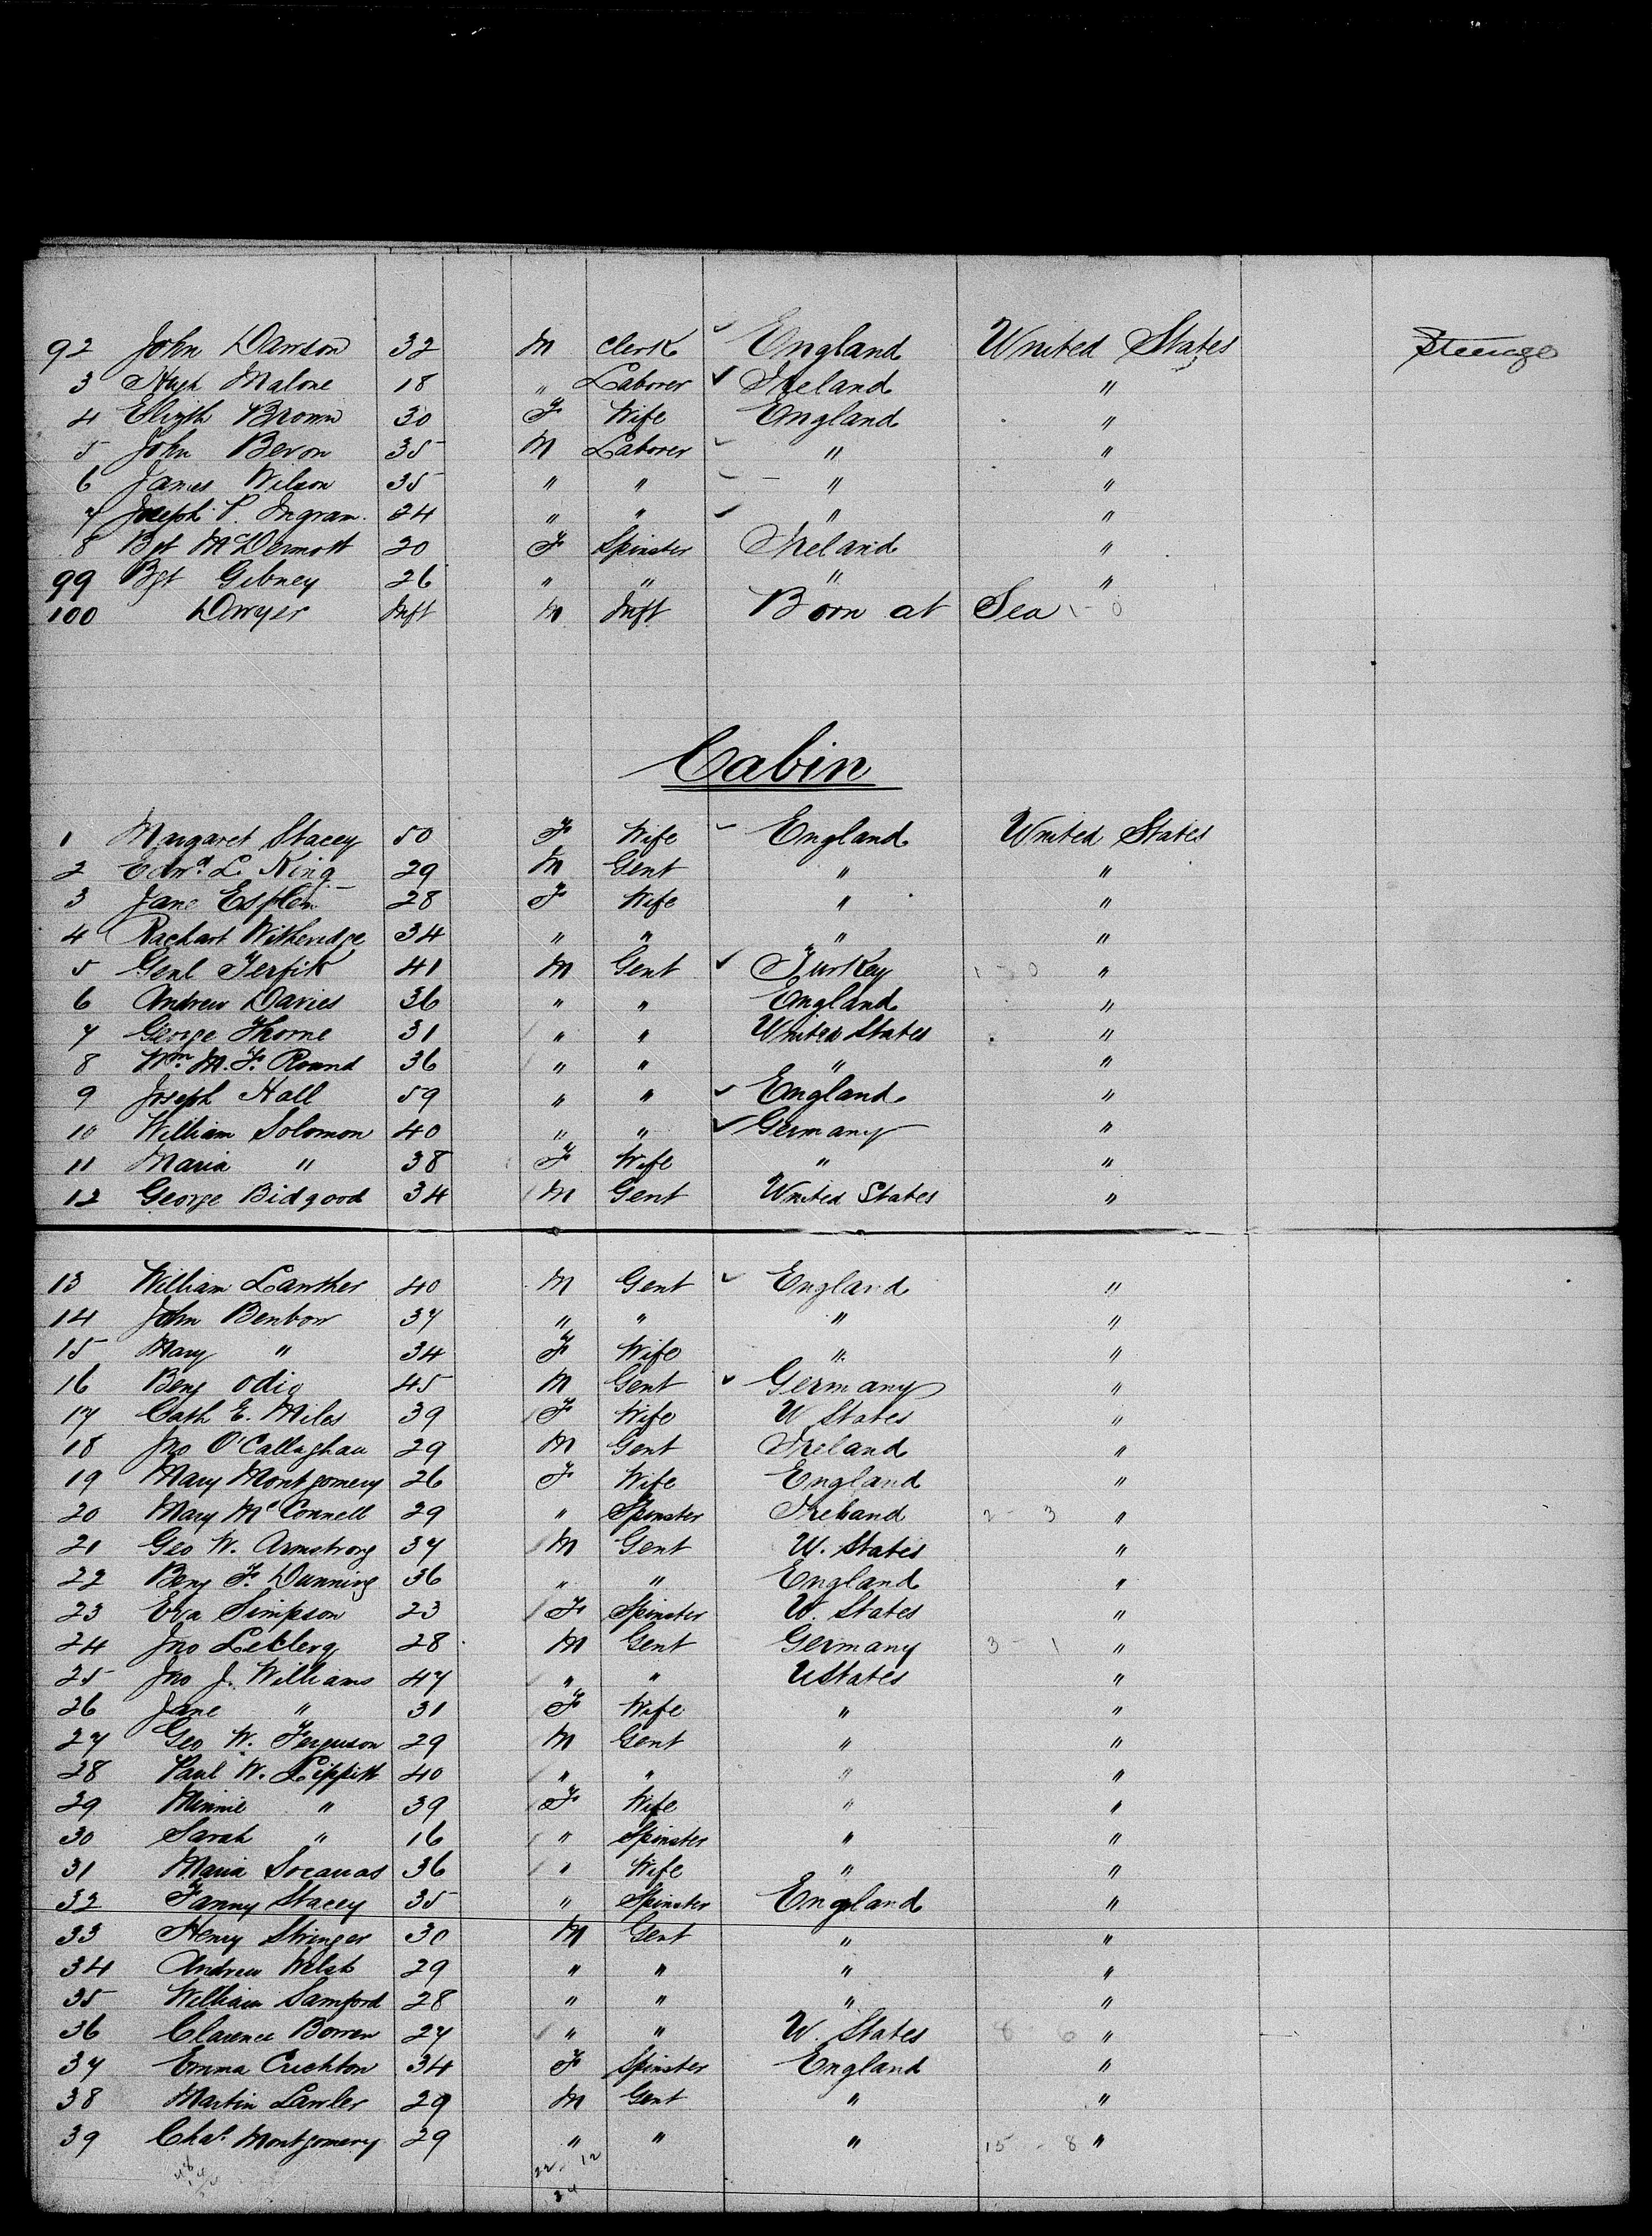 92 John Dawson 32 M Clerk ✓ England United States Steerage
3 Hugh Malone 18 " Laborer ✓ Ireland "
4 Elizth Brown 30 F Wife England "
5 John Bevon 35 M Laborer ✓ " "
6 James Wilson 35 " " ✓ " "
7 Joseph P. Ingram 24 " " ✓ " "
8 Bgt McDermott 20 F Spinster Ireland "
99 Bgt Gibney 26 " " " "
100 Dwyer Inft M Inft Born at Sea 1 - 0
Cabin
1 Margaret Stacey 50 F Wife ✓ England United States
2 Edwd. L. King 29 M Gent " "
3 Jane Esplen 28 F Wife " "
4 Witheridge 34 " " " "
5 Genl Terfik 41 M Gent ✓ Turkey "
6 Andrew Davies 36 " " England "
7 George Thorne 31 " " United States "
8 Wm. M. F. Round 36 " " " "
9 Joseph Hall 59 " " ✓ England "
10 William Solomon 40 " " ✓ Germany "
11 Maria " 38 F Wife " "
12 George Bidgood 34 M Gent United States "
13 William Lawther 40 M Gent ✓ England "
14 John Benbow 37 " " " "
15 Mary " 34 F Wife " "
16 Benj Odio 45 M Gent ✓ Germany "
17 Cath E. Miles 39 F Wife U States "
18 Jno O'Callaghan 29 M Gent Ireland "
19 Mary Montgomery 26 F Wife England "
20 Mary McConnell 29 " Spinster Ireland 2 - 3 "
21 Geo W. Armstrong 37 M Gent U. States "
22 Benj F. Dunning 36 " " England "
23 Eva Simpson 23 F Spinster U. States "
24 Jno Leclerq 28 M Gent Germany 3 - 1 "
25 Jno J. Williams 47 " " UStates "
26 Jane " 31 F Wife " "
27 Geo W. Ferguson 29 M Gent " "
28 Paul W. Lippitt 40 " " " "
29 Minnie " 39 F Wife " "
30 Sarah " 16 " Spinster " "
31 Maria Socarras 36 " Wife " "
32 Fanny Stacey 35 " Spinster England "
33 Henry Stringer 30 M Gent " "
34 Andrew Welsh 29 " " " "
35 William Samford 28 " " " "
36 Clarence Bowen 27 " " U. States 8 6 "
37 Emma Crichton 34 F Spinster England "
38 Martin Lawler 29 M Gent " "
39 Chas. Montgomery 29 " " " 15 - 8 "
22 12